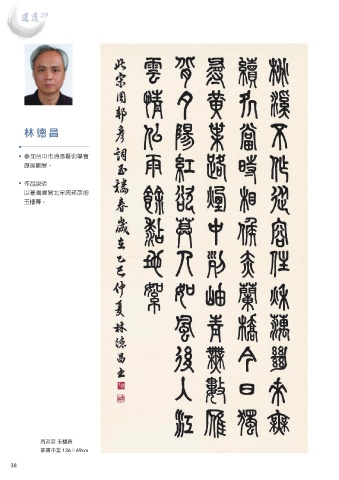 逍遙
林德昌
參加台中市逍遙藝術學會
歷屆聯展。
作品說明
以篆書書寫北宋周邦彥的
玉樓春。
桃溪不作從容住秋藕絕來無
續處當時相候赤蘭橋今日獨
尋黃葉路煙中列岫青無數雁
背夕陽紅欲暮人如風後入江
雲情似雨餘黏地絮
北宋周邦彥詞玉樓春歲在乙巳仲夏林德昌書
周邦彥 玉樓春
篆書中堂 136×69cm
38